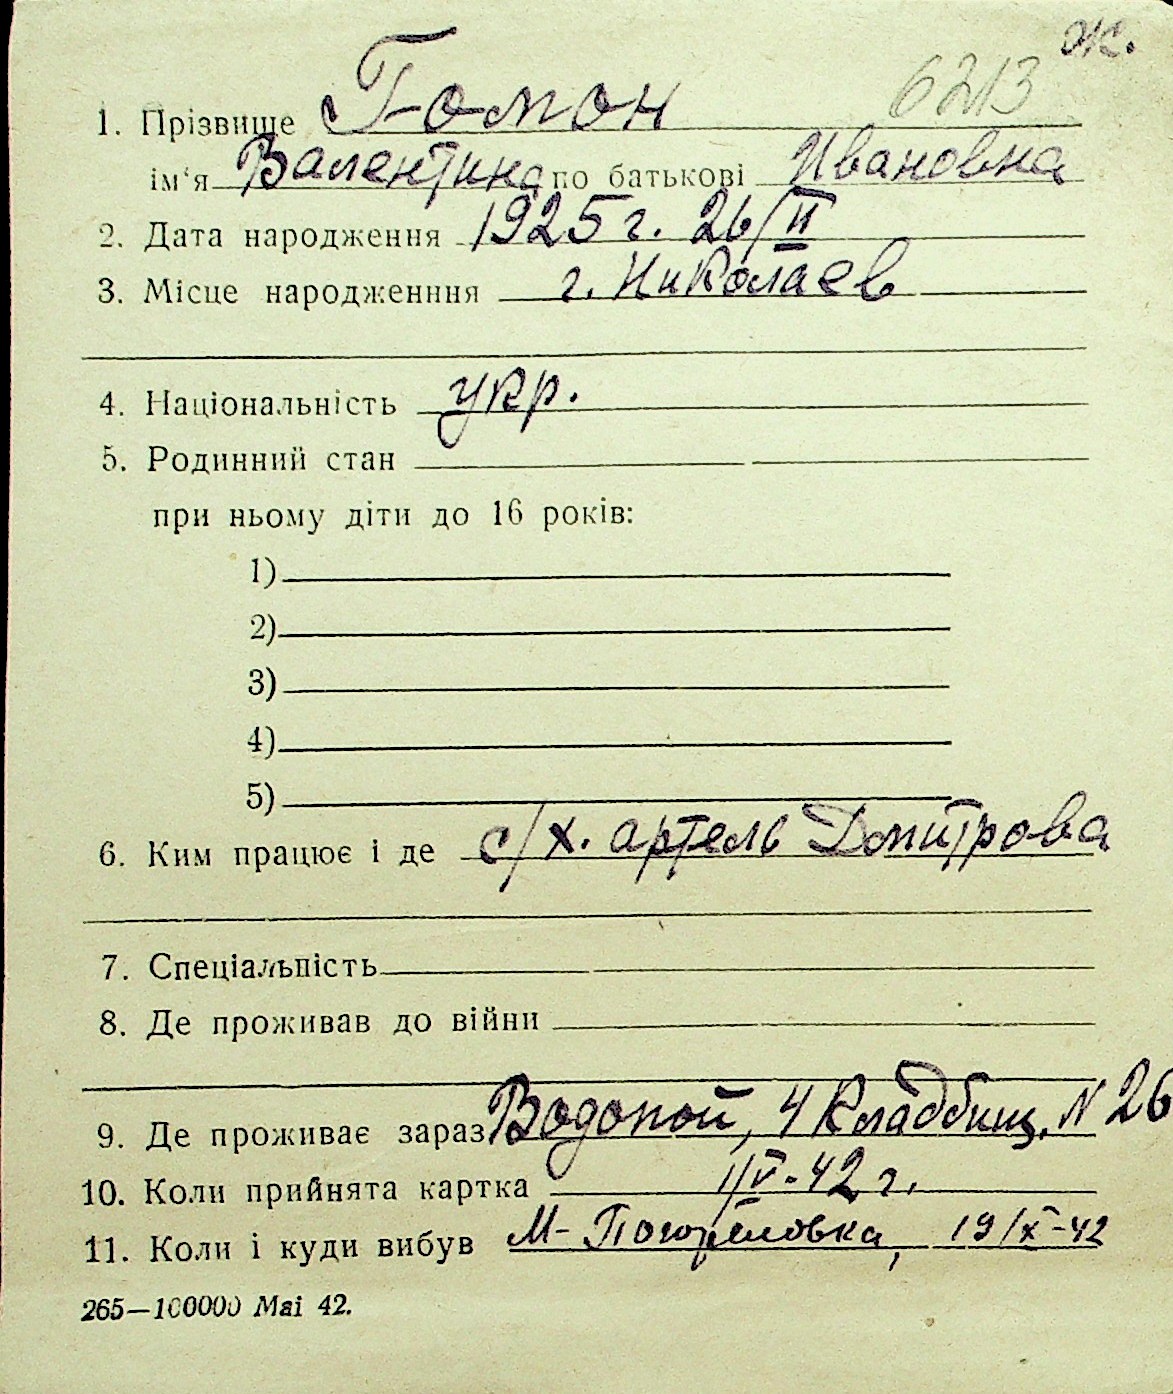 ж.
6213
1. Прізвище Гомон
ім'я Валентина по батькові Ивановна
2. Дата народження 1925 г. 26/II
3. Місце народженння г. Николаев
4. Національність укр.
5. Родинний стан
при ньому діти до 16 років:
1)
2)
3)
4)
5)
6. Ким працює і де с/х. артель Дмитрова
7. Спеціальність
8. Де проживав до війни
9. Де проживає зараз Водопой, 4 Кладбищ. N 26
10. Коли прийнята картка 1/V-42 г.
11. Коли і куди вибув М-Погореловка, 19/X-42
265—100000 Маі 42.